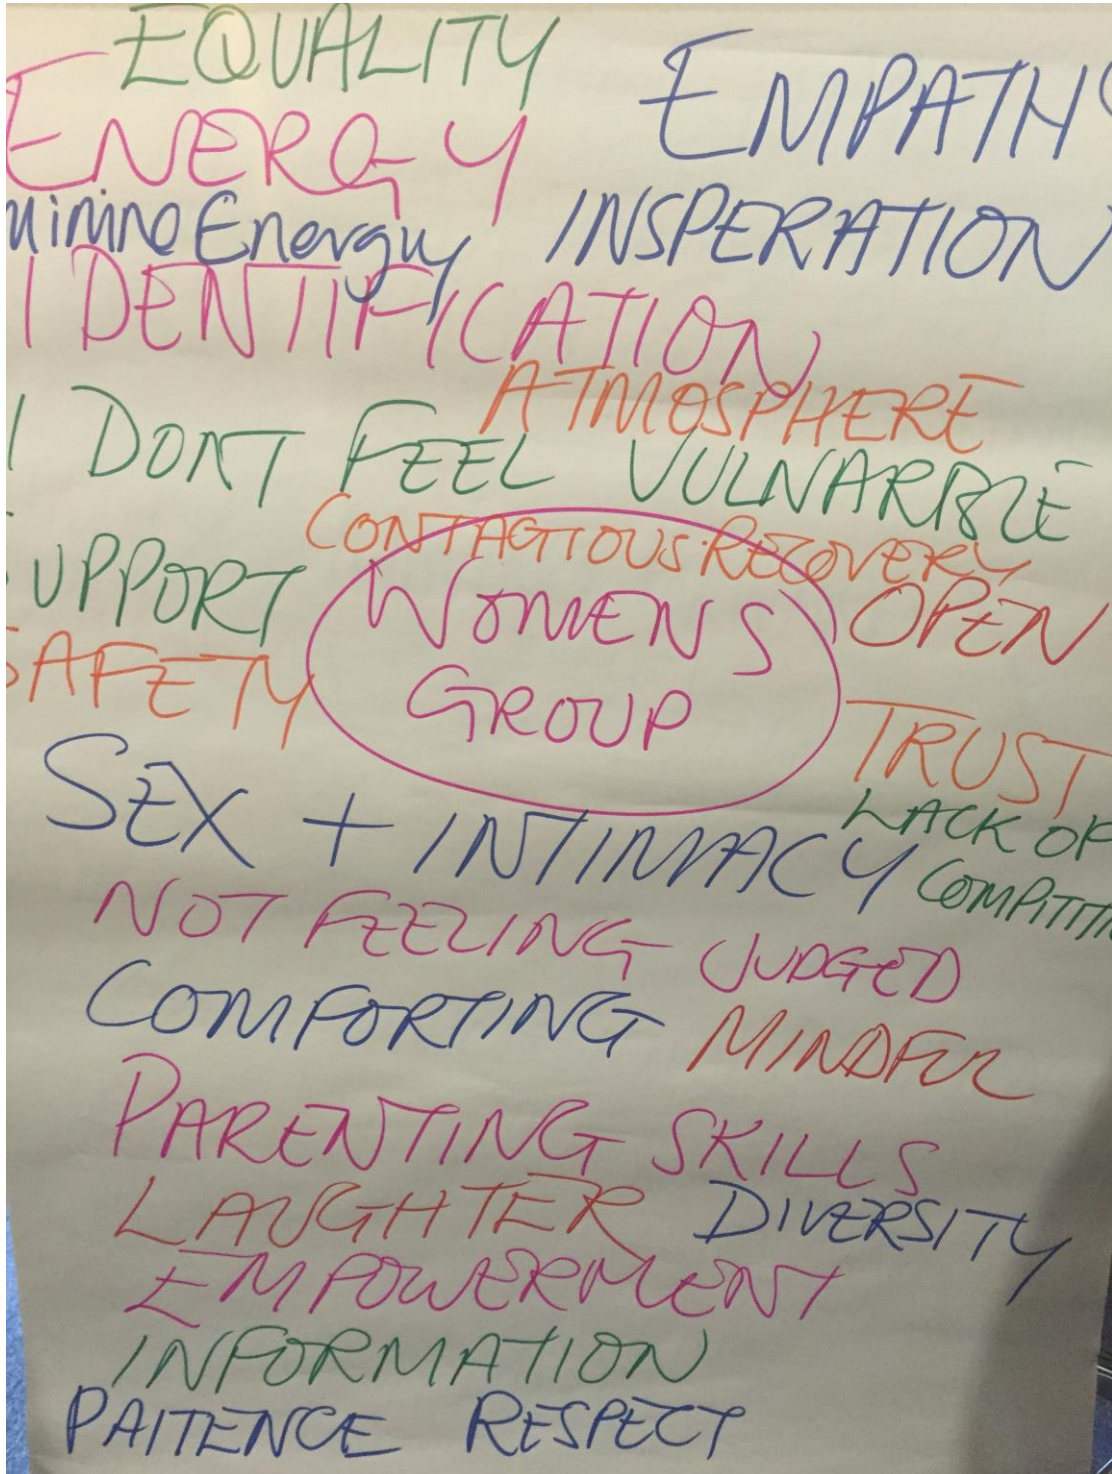 EQUALITY
ENERGY
EMPATHY
minine Energy
INSPERATION
IDENTIFICATION
ATMOSPHERE
I DONT FEEL VULNARBLE
CONTAGIOUS RECOVERY
SUPPORT
WOMENS
GROUP
OPEN
SAFETY
TRUST
SEX + INTIMACY
LACK OF
COMPITITI
NOT FEELING JUDGED
COMFORTING
MINDFUL
PARENTING SKILLS
LAUGHTER
DIVERSITY
EMPOWERMENT
INFORMATION
PAITENCE RESPECT